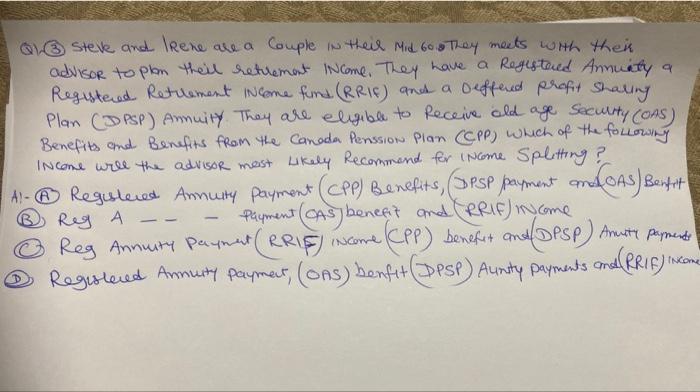 Q1-③ Steve and IRene are a Couple in their Mid 60s They meets with their
advisor to plan their retirement INcome. They have a Registered Annuity a
Registered Retirement INcome fund (RRIF) and a Deffered profit Sharing
Plan (DPSP) Annuity. They are eligible to Receive old age Security (OAS)
Benefits and Benefits from the Canada Penssion Plan (CPP) which of the following
INcome will the advisor most likely Recommend for INcome Splitting?
A1:- Ⓐ Registered Annuity payment (CPP) Benefits, (DPSP payment and (OAS) Benfit
Ⓑ Reg A -- - payment (OAS) benefit and (RRIF) INcome
Ⓒ Reg Annuity Payment (RRIF) income (CPP) benefit and (DPSP) Anuity payments
Ⓓ Registered Annuity payment, (OAS) benfit (DPSP) Aunity payments and (RRIF) INcome